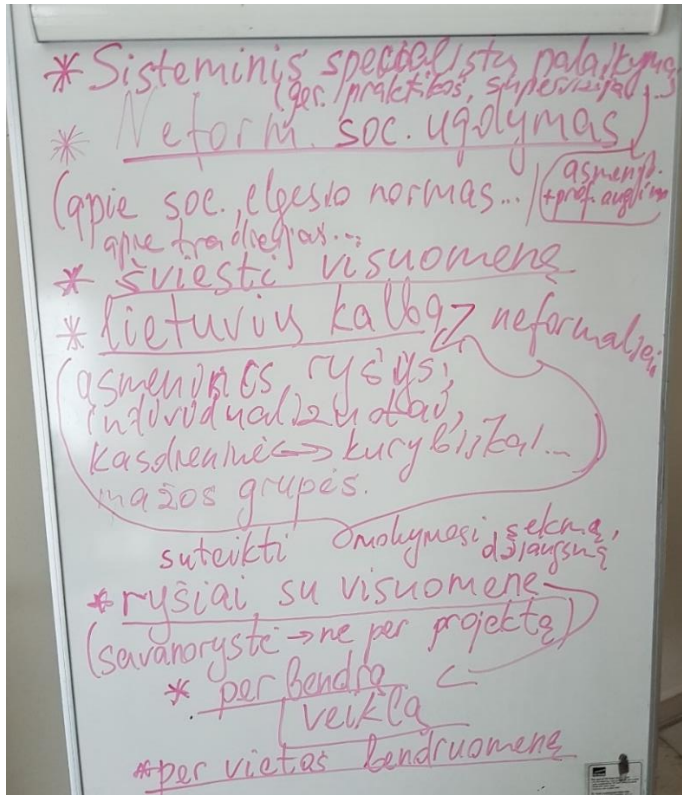 * Sisteminis specialistų palaikymas
(ger. praktikos, supervizija...)
* Neform. soc. ugdymas
(apie soc., elgesio normas... / asmenyb.
+ prof. augimo
apie tradicijas...
* šviesti visuomenę
* lietuvių kalba neformaliai
(asmeninis ryšys,
individualizuotai,
kasdieninė <-> kurybiškai...
mažos grupės.
suteikti mokymosi sėkmę,
džiaugsmą
* ryšiai su visuomene
(savanorystė → ne per projektą)
* per bendrą
veiklą
* per vietos bendruomenę